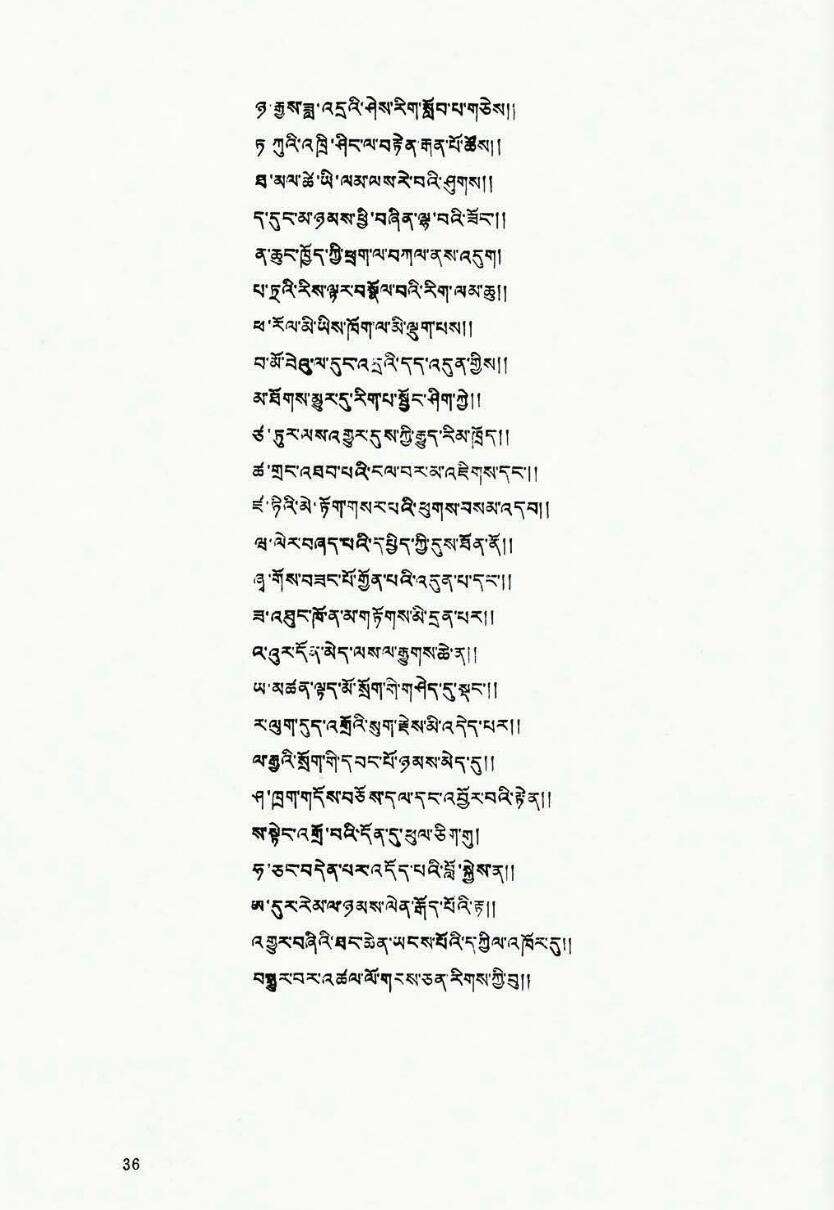 ཉ་རྒྱས་ཟླ་འདྲའི་ཤེས་རིག་སློབ་པ་གཅེས།།
ཏ་ཀུའི་འཁྲི་ཤིང་ལ་བརྟེན་རྒན་པོ་ཚོས།།
ཐ་མལ་ཚེ་ཡི་ལམ་ལས་རེ་བའི་ཤུགས།།
ད་དུང་མ་ཉམས་ཕྱི་བཞིན་ལྟ་བའི་ཟོང་།།
ན་ཆུང་ཁྱོད་ཀྱི་ཕྲག་ལ་བཀལ་ནས་འདུག།
པ་ཏྲའི་རིས་ལྟར་བསྣོལ་བའི་རིག་ལམ་ཆུ།།
ཕ་རོལ་མི་ཡིས་ཁོག་ལ་མི་ལྡུག་པས།།
བ་མོ་བེའུ་ལ་དུང་འདྲའི་དད་འདུན་གྱིས།།
མ་ཐོགས་མྱུར་དུ་རིག་པ་སྦྱོང་ཤིག་ཀྱེ།།
ཙ་ཏུར་ལས་འགྱུར་དུས་ཀྱི་རྒྱུད་རིམ་ཁྲོད།།
ཚ་གྲང་འཐབ་པའི་ངལ་བར་མ་འཇིགས་དང་།།
ཛ་ཏིའི་མེ་ཏོག་གསར་པའི་ཕུགས་བསམ་འདབ།།
ཝ་ལེར་བཞད་པའི་དཔྱིད་ཀྱི་དུས་ཐོན་ནོ།།
ཞྭ་གོས་བཟང་པོ་གྱོན་པའི་འདུན་པ་དང་།།
ཟ་འཐུང་ཁོ་ན་མ་གཏོགས་མི་དྲན་པར།།
འ་འུར་དོན་མེད་ལས་ལ་རྒྱུགས་ཆེ་ན།།
ཡ་མཚན་ལྟད་མོ་སྲོག་གི་གཤེད་དུ་སྡང་།།
ར་ལུག་དུད་འགྲོའི་སུག་རྗེས་མི་འདེད་པར།།
ལ་རྒྱའི་སྲོག་གི་དབང་པོ་ཉམས་མེད་དུ།།
ཤ་ཁྲག་གདོས་བཅོས་དལ་དང་འབྱོར་བའི་རྟེན།།
ས་སྟེང་འགྲོ་བའི་དོན་དུ་ཕུལ་ཅིག་གུ།
ཧ་ཅང་བདེན་པར་འདོད་པའི་བློ་སྐྱེས་ན།།
ཨ་དུར་རེམ་ལ་ཉམས་ལེན་རྒོད་པོའི་རྟ།།
འགྱུར་བཞིའི་ཐང་ཆེན་ཡངས་པོའི་དཀྱིལ་འཁོར་དུ།།
བསྒྱུར་བར་འཚལ་ལོ་གངས་ཅན་རིགས་ཀྱི་བུ།།
36